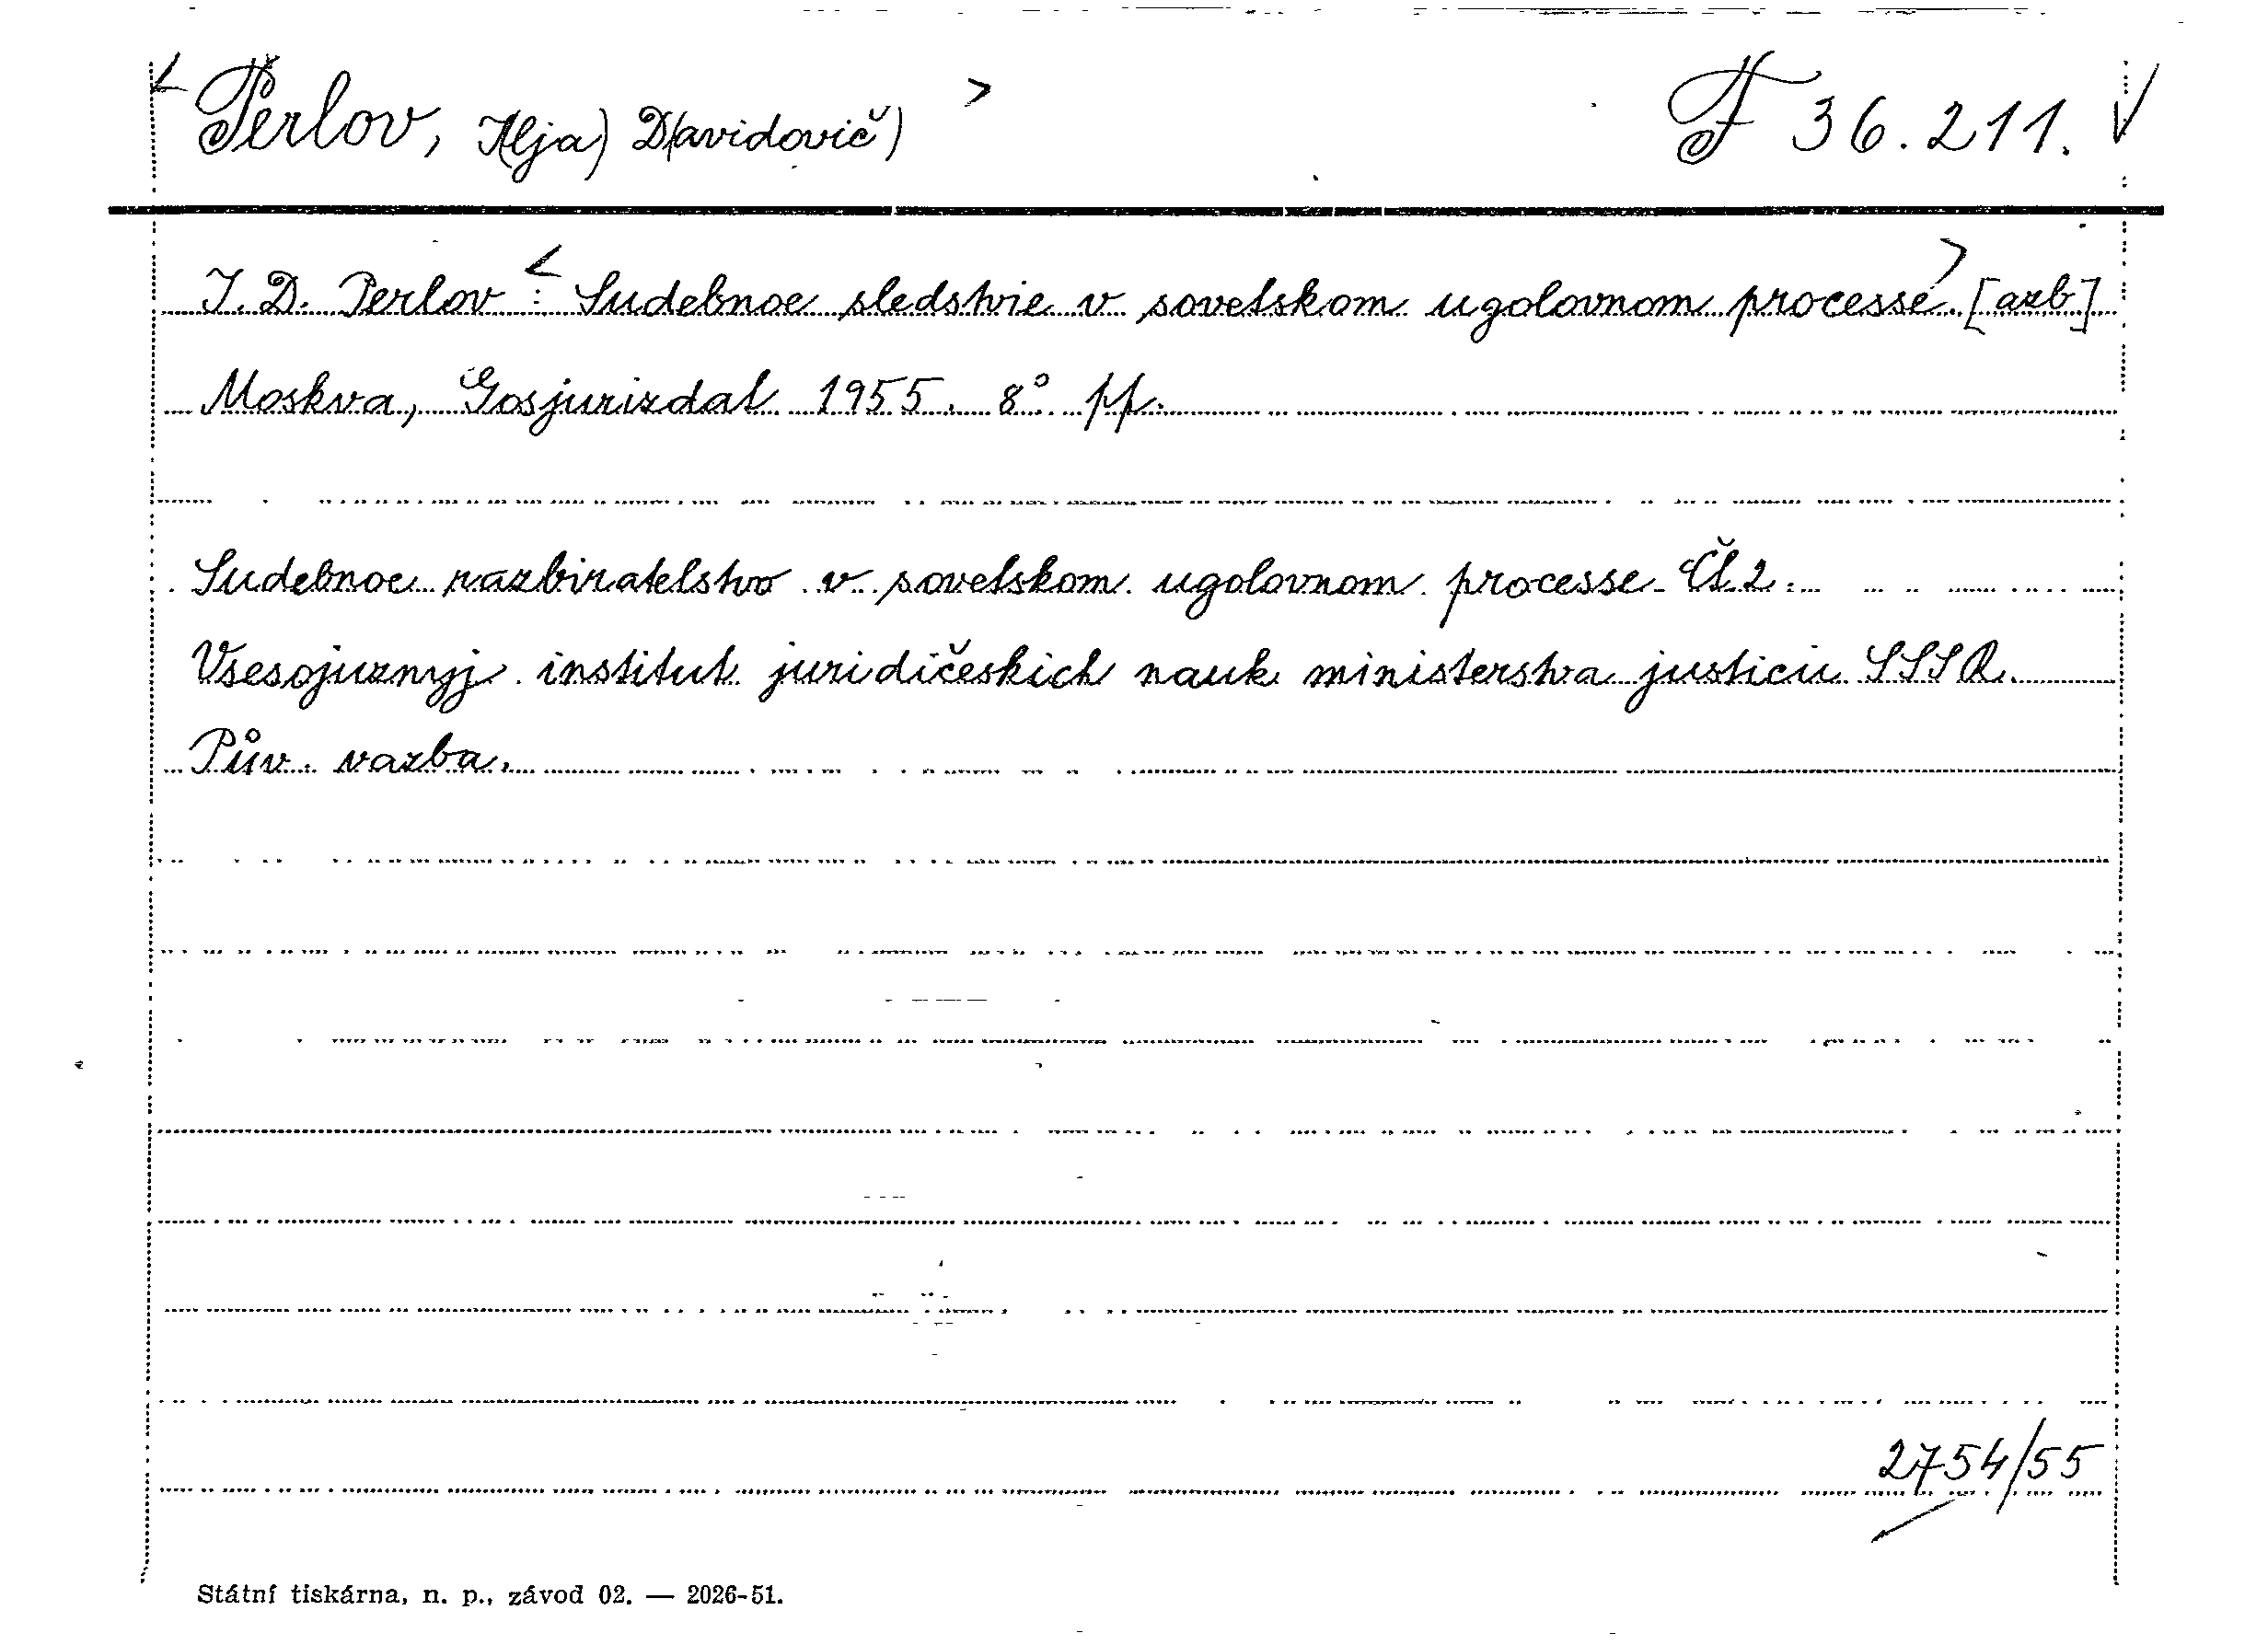 < Perlov, I(lja) D(avidovič) > F 36.211.
I. D. Perlov : < Sudebnoe sledstvie v sovetskom ugolovnom processe >. [azb]
Moskva, Gosjurizdat 1955. 8° pp.
Sudebnoe razbiratelstvo v sovetskom ugolovnom processe Č. 2.
Vsesojuznyj institut juridičeskich nauk ministerstva justicii SSSR.
Pův. vazba.
2754/55
Státní tiskárna, n. p., závod 02. — 2026-51.